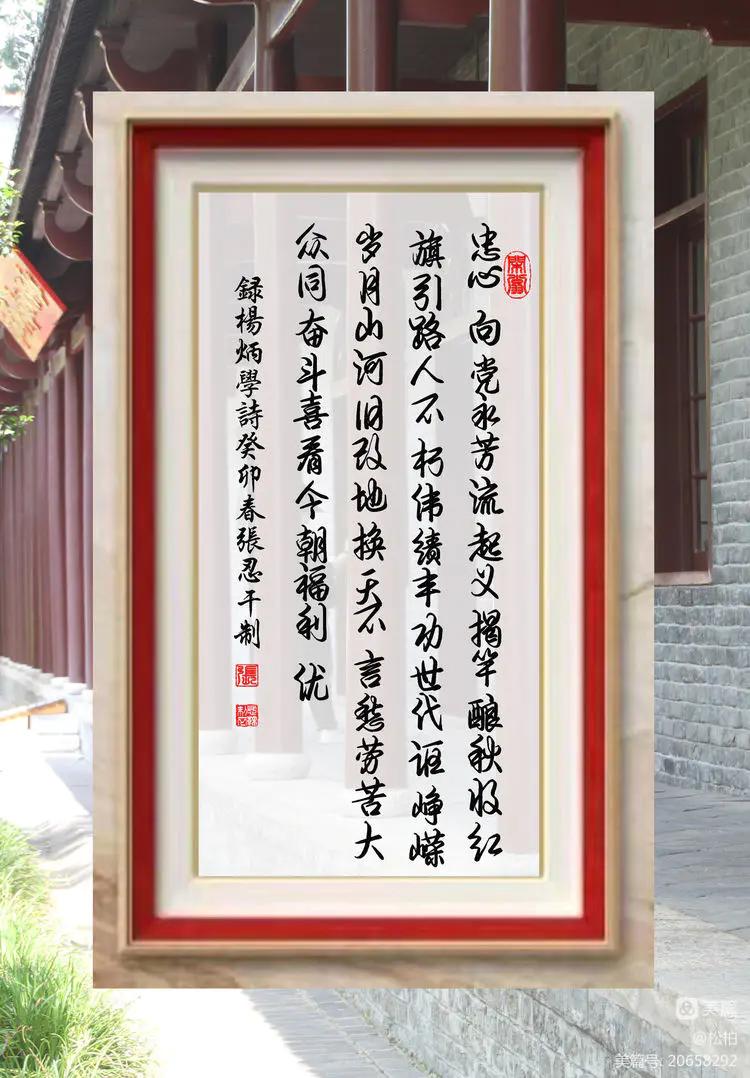 忠心向党永芳流起义揭竿酿秋收红
旗引路人不朽伟绩丰功世代讴峥嵘
岁月山河旧改地换天不言愁劳苦大
众同奋斗喜看今朝福利优
録楊炳學詩癸卯春張忍干制
美篇
@松柏
美篇号: 20658292